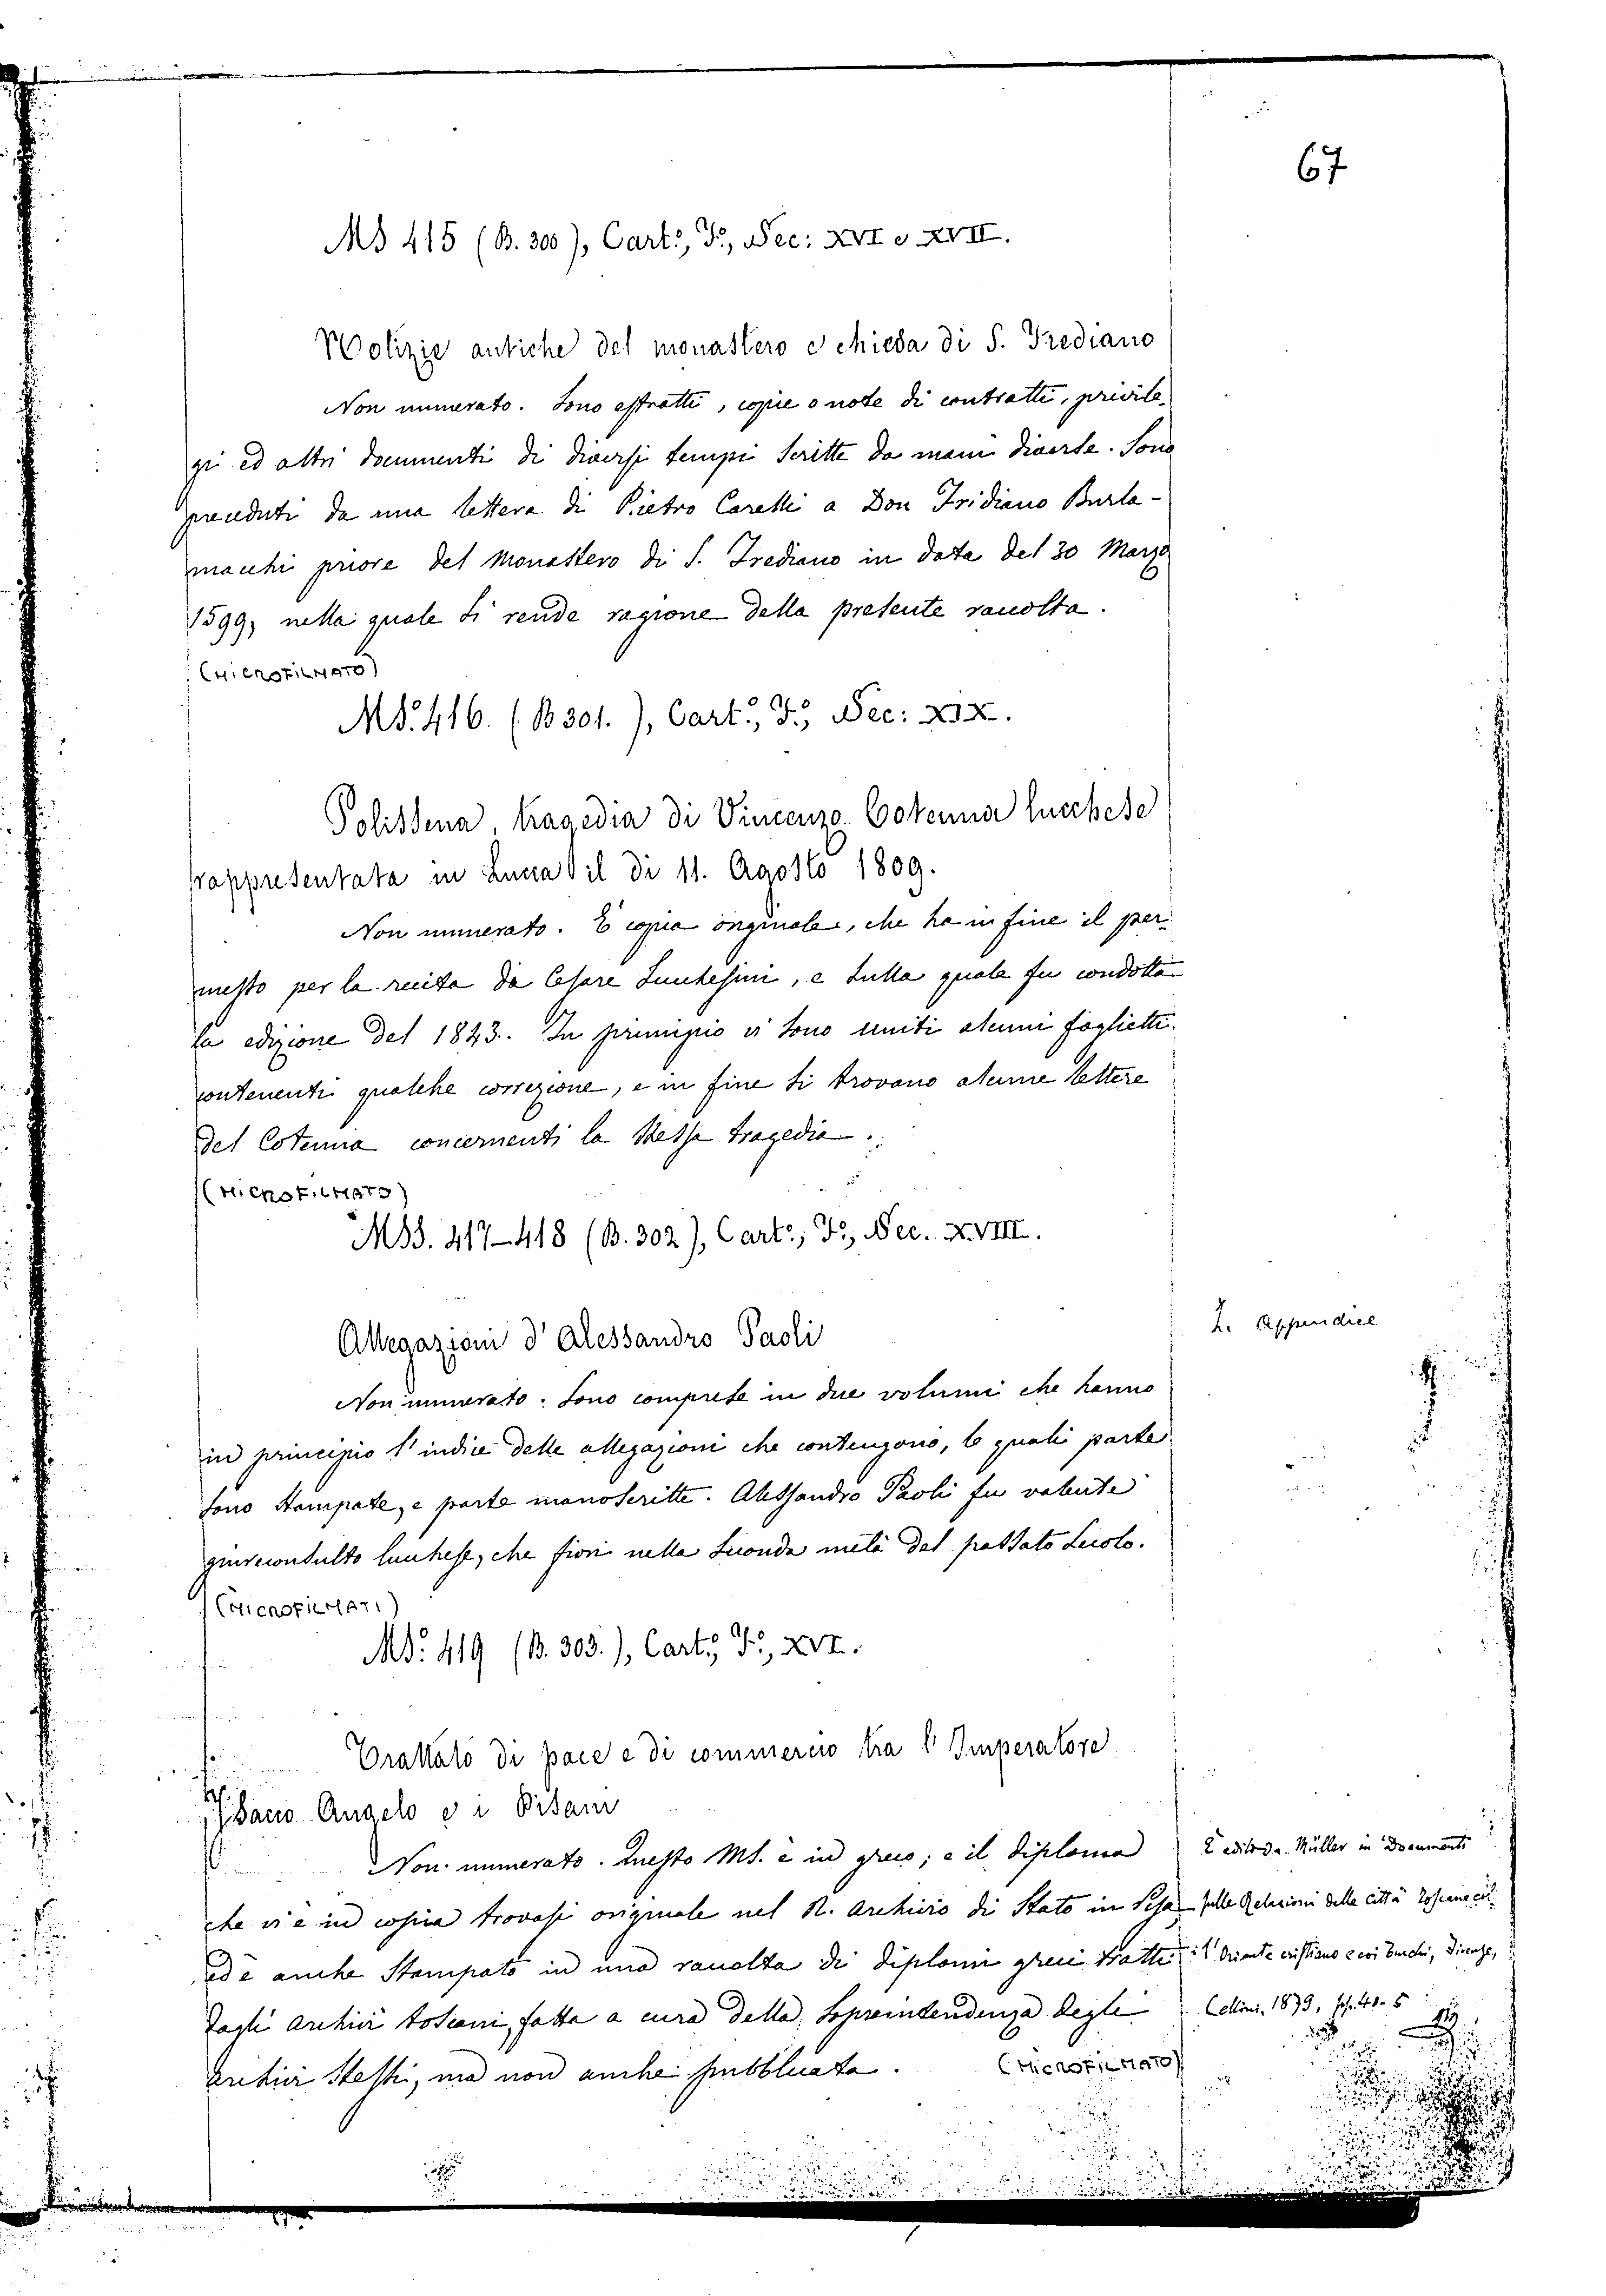 67
MS 415 (B. 300), Cart:, F:, Sec: XVI e XVII.
Notizie antiche del monastero e chiesa di S. Frediano
Non numerato. Sono estratti, copie o note di contratti, privile-
gi ed altri documenti di diversi tempi scritte da mani diverse. Sono
preceduti da una lettera di Pietro Carelli a Don Fridiano Burla-
macchi priore del Monastero di S. Frediano in data del 30 Marzo
1599, nella quale si rende ragione della presente raccolta.
(MICROFILMATO)
MS. 416. (B 301.), Cart:, F:, Sec: XIX.
Polissena, tragedia di Vincenzo Cotenna lucchese
rappresentata in Lucca il di 11. Agosto 1809.
Non numerato. È copia originale, che ha in fine il per-
messo per la recita da Cesare Lucchesini, e sulla quale fu condotta
la edizione del 1823. In principio vi sono uniti alcuni foglietti
contenenti qualche correzione, e in fine si trovano alcune lettere
del Cotenna concernenti la stessa tragedia.
(MICROFILMATO)
MSS. 417-418 (B. 302), Cart:, F:, Sec. XVIII.
Allegazioni d'Alessandro Paoli
2. Appendice
Non numerato. Sono comprese in due volumi che hanno
in principio l'indice delle allegazioni che contengono, le quali parte
sono stampate, e parte manoscritte. Alessandro Paoli fu valente
giureconsulto lucchese, che fiorì nella seconda metà del passato secolo.
(MICROFILMATI)
MS. 419 (B. 303.), Cart:, F:, XVI.
Trattato di pace e di commercio tra l'Imperatore
Isacio Angelo e i Pisani
Non numerato. Questo MS. è in greco; e il diploma
che vi è in copia trovasi originale nel R. Archivio di Stato in Pisa
ed è anche stampato in una raccolta di diplomi greci tratti
dagli archivi toscani, fatta a cura della Sopraintendenza degli
archivi stessi, ma non anche pubblicata. (MICROFILMATO)
È edito da Müller in Documenti
sulle Relazioni delle città Toscane col
l'Oriente cristiano e coi Turchi, Firenze,
Cellini, 1879, pp. 40. 5